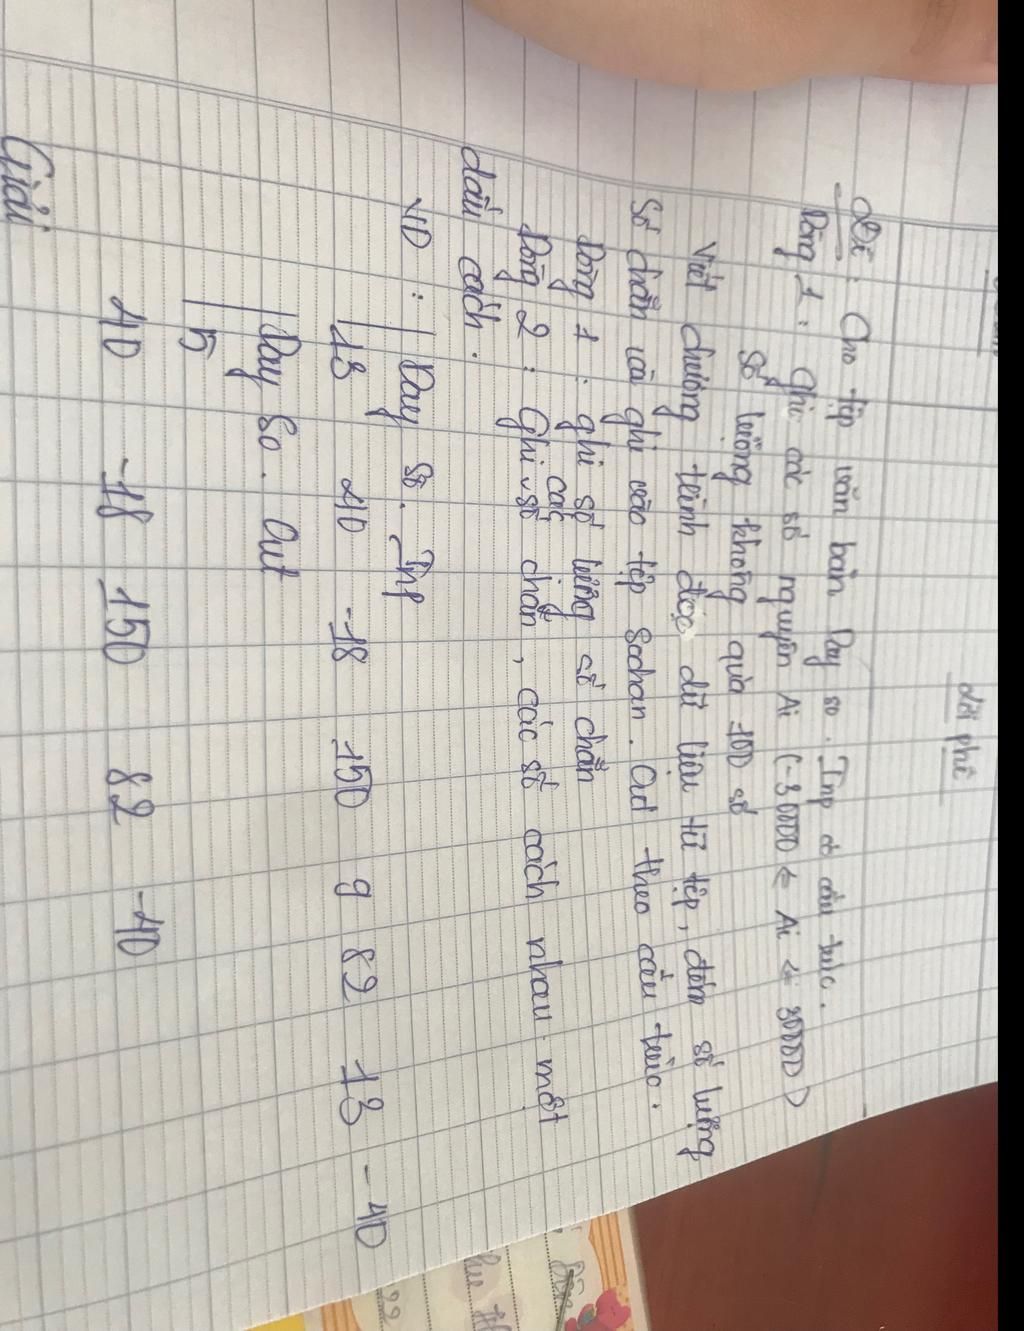 Lời phê
Đề : Cho tệp văn bản Day so. Inp có cấu trúc.
Dòng 1 : Ghi các số nguyên Ai (-30000 ≤ Ai ≤ 30000)
số lượng không quá 100 số
Viết chương trình đọc dữ liệu từ tệp, đếm số lượng
số chẵn và ghi vào tệp Sochan. Out theo cấu trúc.
Dòng 1 : ghi số lượng số chẵn
Dòng 2 : Ghi các số chẵn, các số cách nhau một
dấu cách.
VD : Day so. Inp
13 40 -18 150 9 82 13 -40
Day So. Out
5
40 -18 150 82 -40
Giải